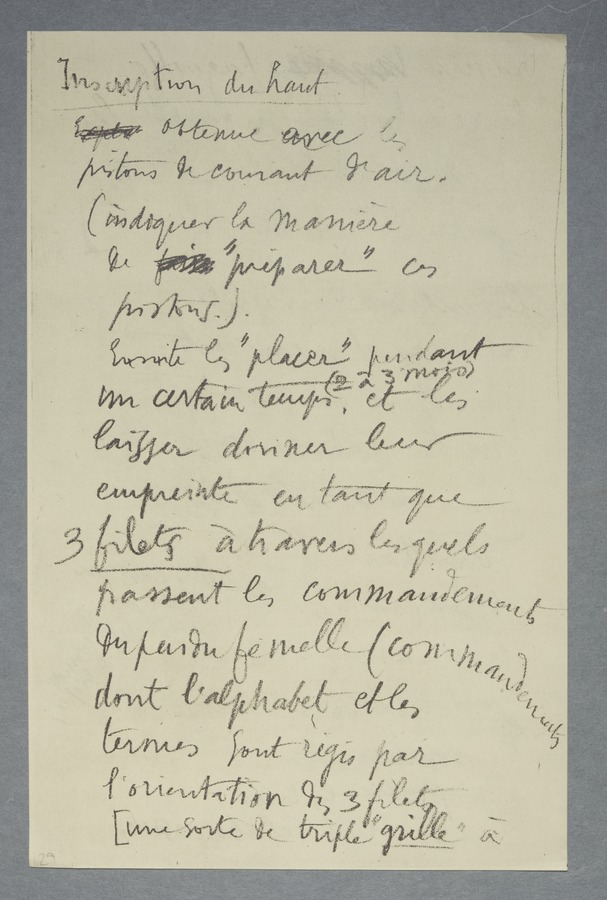 Inscription du haut
obtenue avec les
pistons de courant d'air.
(indiquer la manière
de "préparer" ces
pistons.).
Ensuite les "placer" pendant
(2 à 3 mois)
un certain temps, et les
laisser dessiner leur
empreinte en tant que
3 filets à travers lesquels
passent les commandements
du pendu femelle (commandements
dont l'alphabet et les
termes sont régis par
l'orientation des 3 filets
[une sorte de triple "grille" à
29